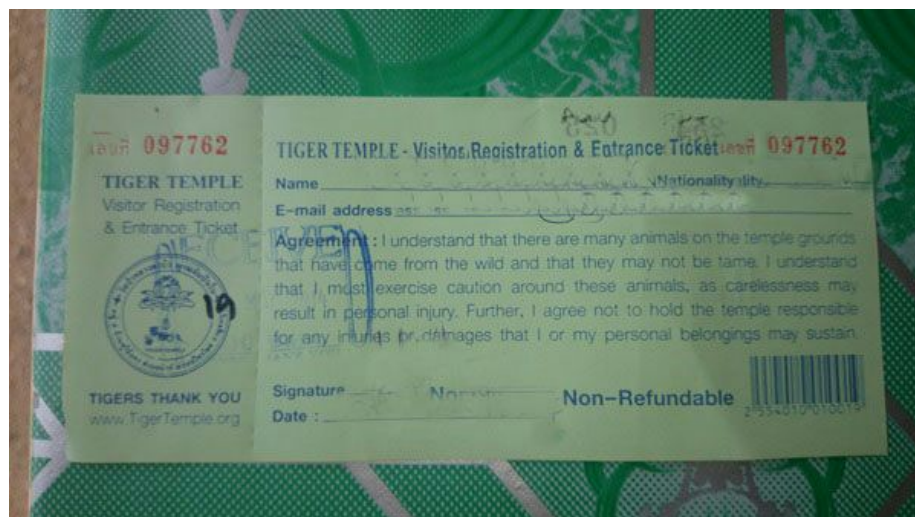 เลขที่ 097762
TIGER TEMPLE
Visitor Registration
& Entrance Ticket
19
TIGERS THANK YOU
www.TigerTemple.org
TIGER TEMPLE - Visitor Registration & Entrance Ticket เลขที่ 097762
Name Nationality
E-mail address
Agreement : I understand that there are many animals on the temple grounds
that have come from the wild and that they may not be tame. I understand
that I must exercise caution around these animals, as carelessness may
result in personal injury. Further, I agree not to hold the temple responsible
for any injuries or damages that I or my personal belongings may sustain.
Signature
Non-Refundable
Date :
2554010010015